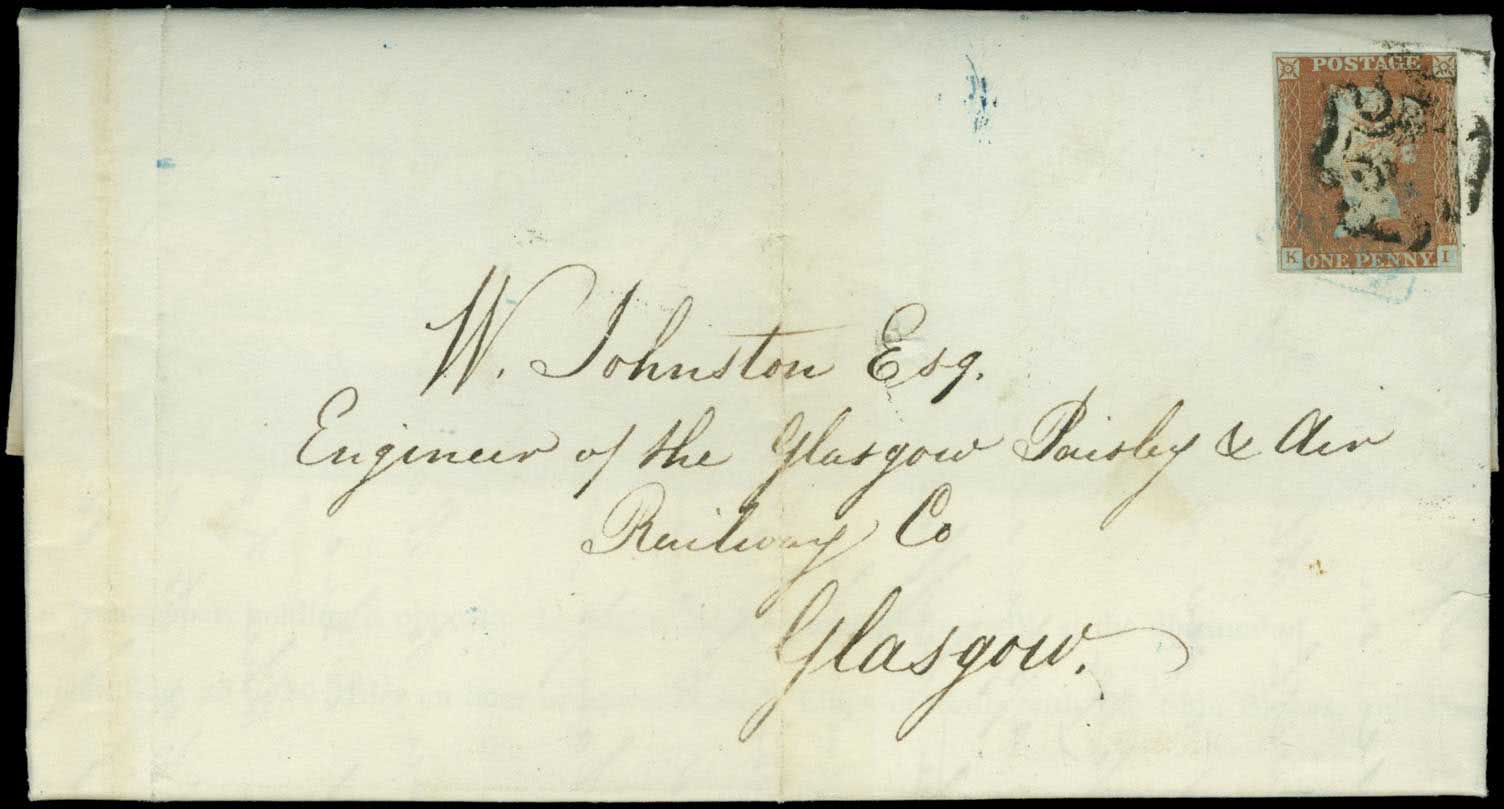 POSTAGE
K ONE PENNY I
W. Johnston Esq.
Engineer of the Glasgow Paisley & Air
Railway Co
Glasgow.